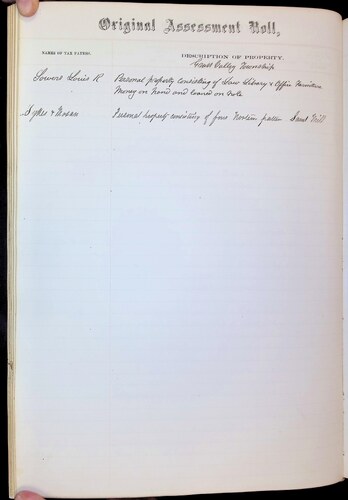 Original Assessment Roll,
NAMES OF TAX PAYERS.
DESCRIPTION OF PROPERTY.
Grass Valley Township
Sowers Louis R. Personal property consisting of Law Library & Office Furniture
Money on hand and loaned on note
Sykes & Personal property consisting of four pattern